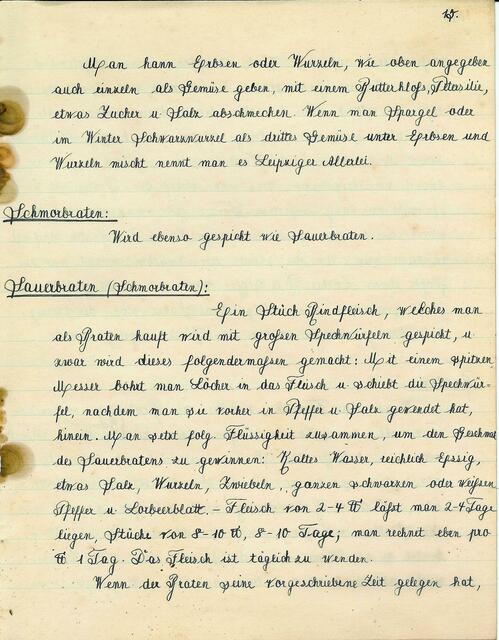 15.
Man kann Erbsen oder Wurzeln, wie oben angegeben
auch einzeln als Gemüse geben, mit einem Butterkloß, Petersilie,
etwas Zucker u Salz abschmecken. Wenn man Spargel oder
im Winter Schwarzwurzel als drittes Gemüse unter Erbsen und
Wurzeln mischt nennt man es Leipziger Allerlei.
Schmorbraten:
Wird ebenso gespickt wie Sauerbraten.
Sauerbraten (Schmorbraten):
Ein Stück Rindfleisch, welches man
als Braten kauft wird mit großen Speckwürfeln gespickt, u
zwar wird dieses folgendermaßen gemacht: Mit einem spitzen
Messer bohrt man Löcher in das Fleisch u. schiebt die Speckwür-
fel, nachdem man sie vorher in Pfeffer u. Salz gewendet hat,
hinein. Man setzt folg. Flüssigkeit zusammen, um den Geschmak
des Sauerbratens zu gewinnen: Kaltes Wasser, reichlich Essig,
etwas Salz, Wurzeln, Zwiebeln, ganzen schwarzen oder weißen
Pfeffer u. Lorbeerblatt. – Fleisch von 2-4 ℔ läßt man 2-4 Tage
liegen, Stücke von 8-10 ℔, 8-10 Tage; man rechnet eben pro
℔ 1 Tag. Das Fleisch ist täglich zu wenden.
Wenn der Braten seine vorgeschriebene Zeit gelegen hat,